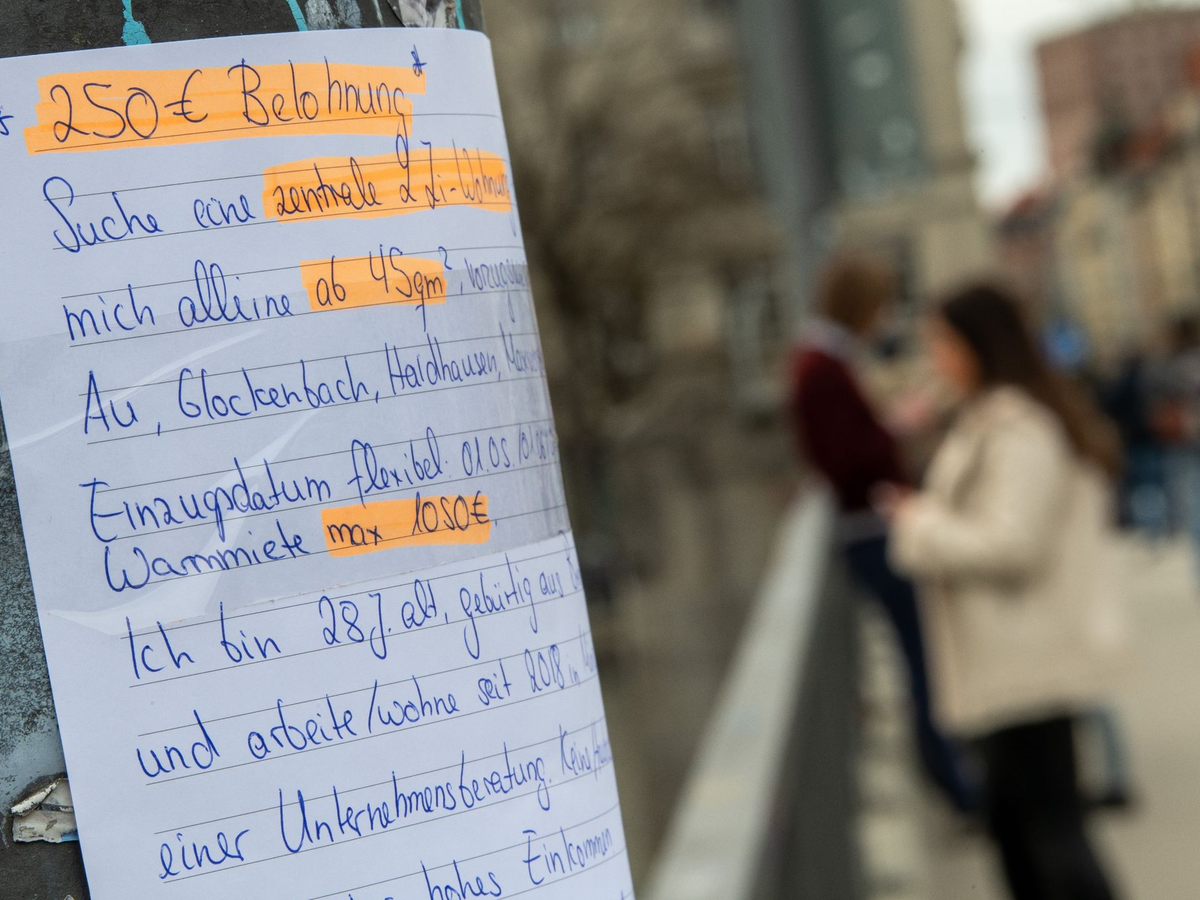 250€ Belohnung*
Suche eine zentrale 2 Zi-Wohnun
mich alleine ab 45qm²,
Au, Glockenbach, Haidhausen,
Einzugsdatum flexibel: 01.05
Warmmiete max 1050€.
Ich bin 28 J. alt, gebürtig aus
und arbeite/wohne seit 2018 in
einer Unternehmensberatung.
hohes Einkommen